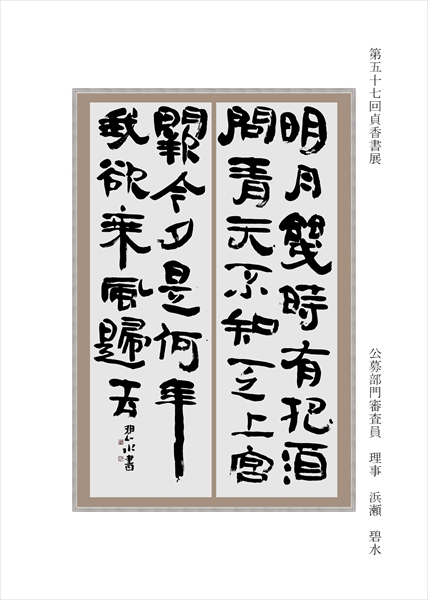 第五十七回貞香書展
公募部門審査員 理事 浜瀬 碧水
明月幾時有把酒
問青天不知天上宮
闕今夕是何年
我欲乘風歸去
碧水書